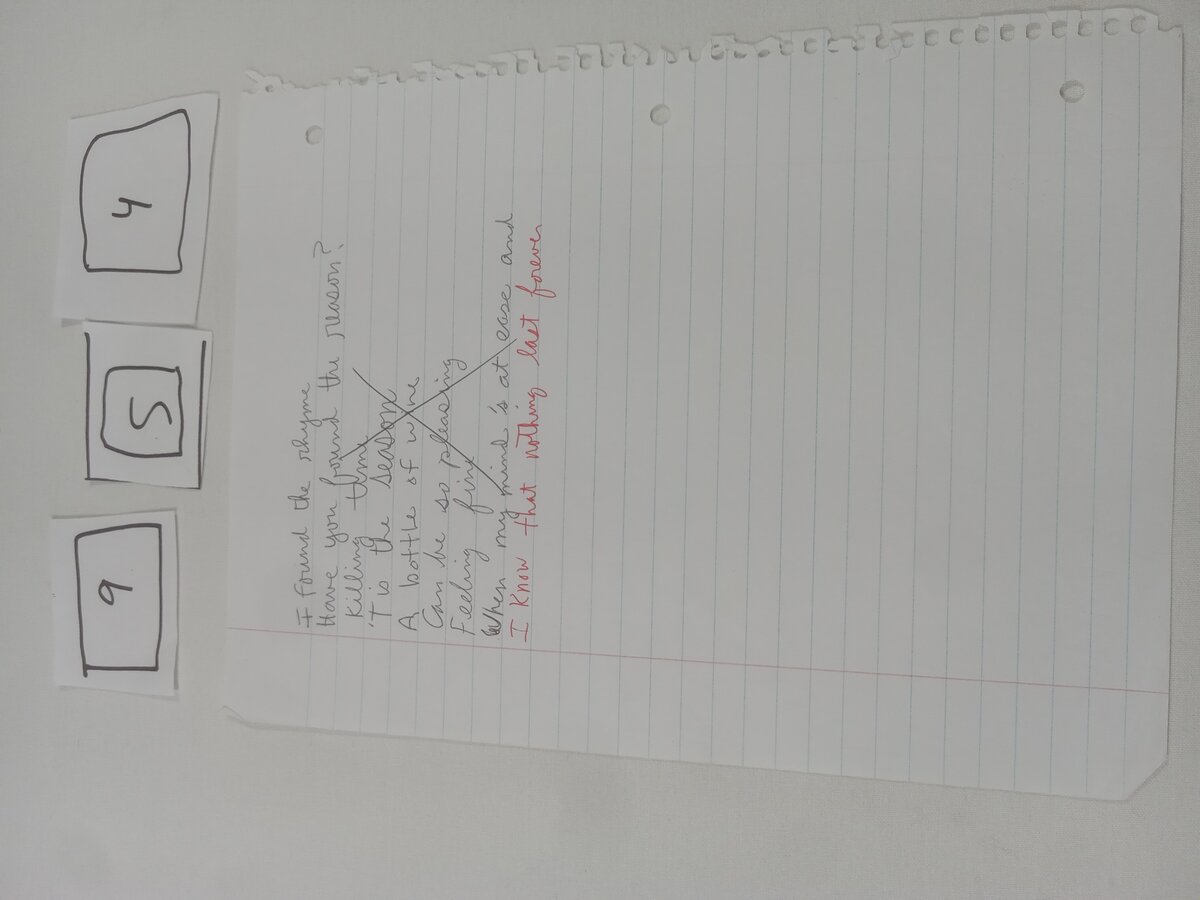 9
5
4
I Found the rhyme
Have you found the reason?
Killing time
'T is the season
A bottle of wine
Can be so pleasing
Feeling fine
When my mind's at ease and
I Know that nothing last forever